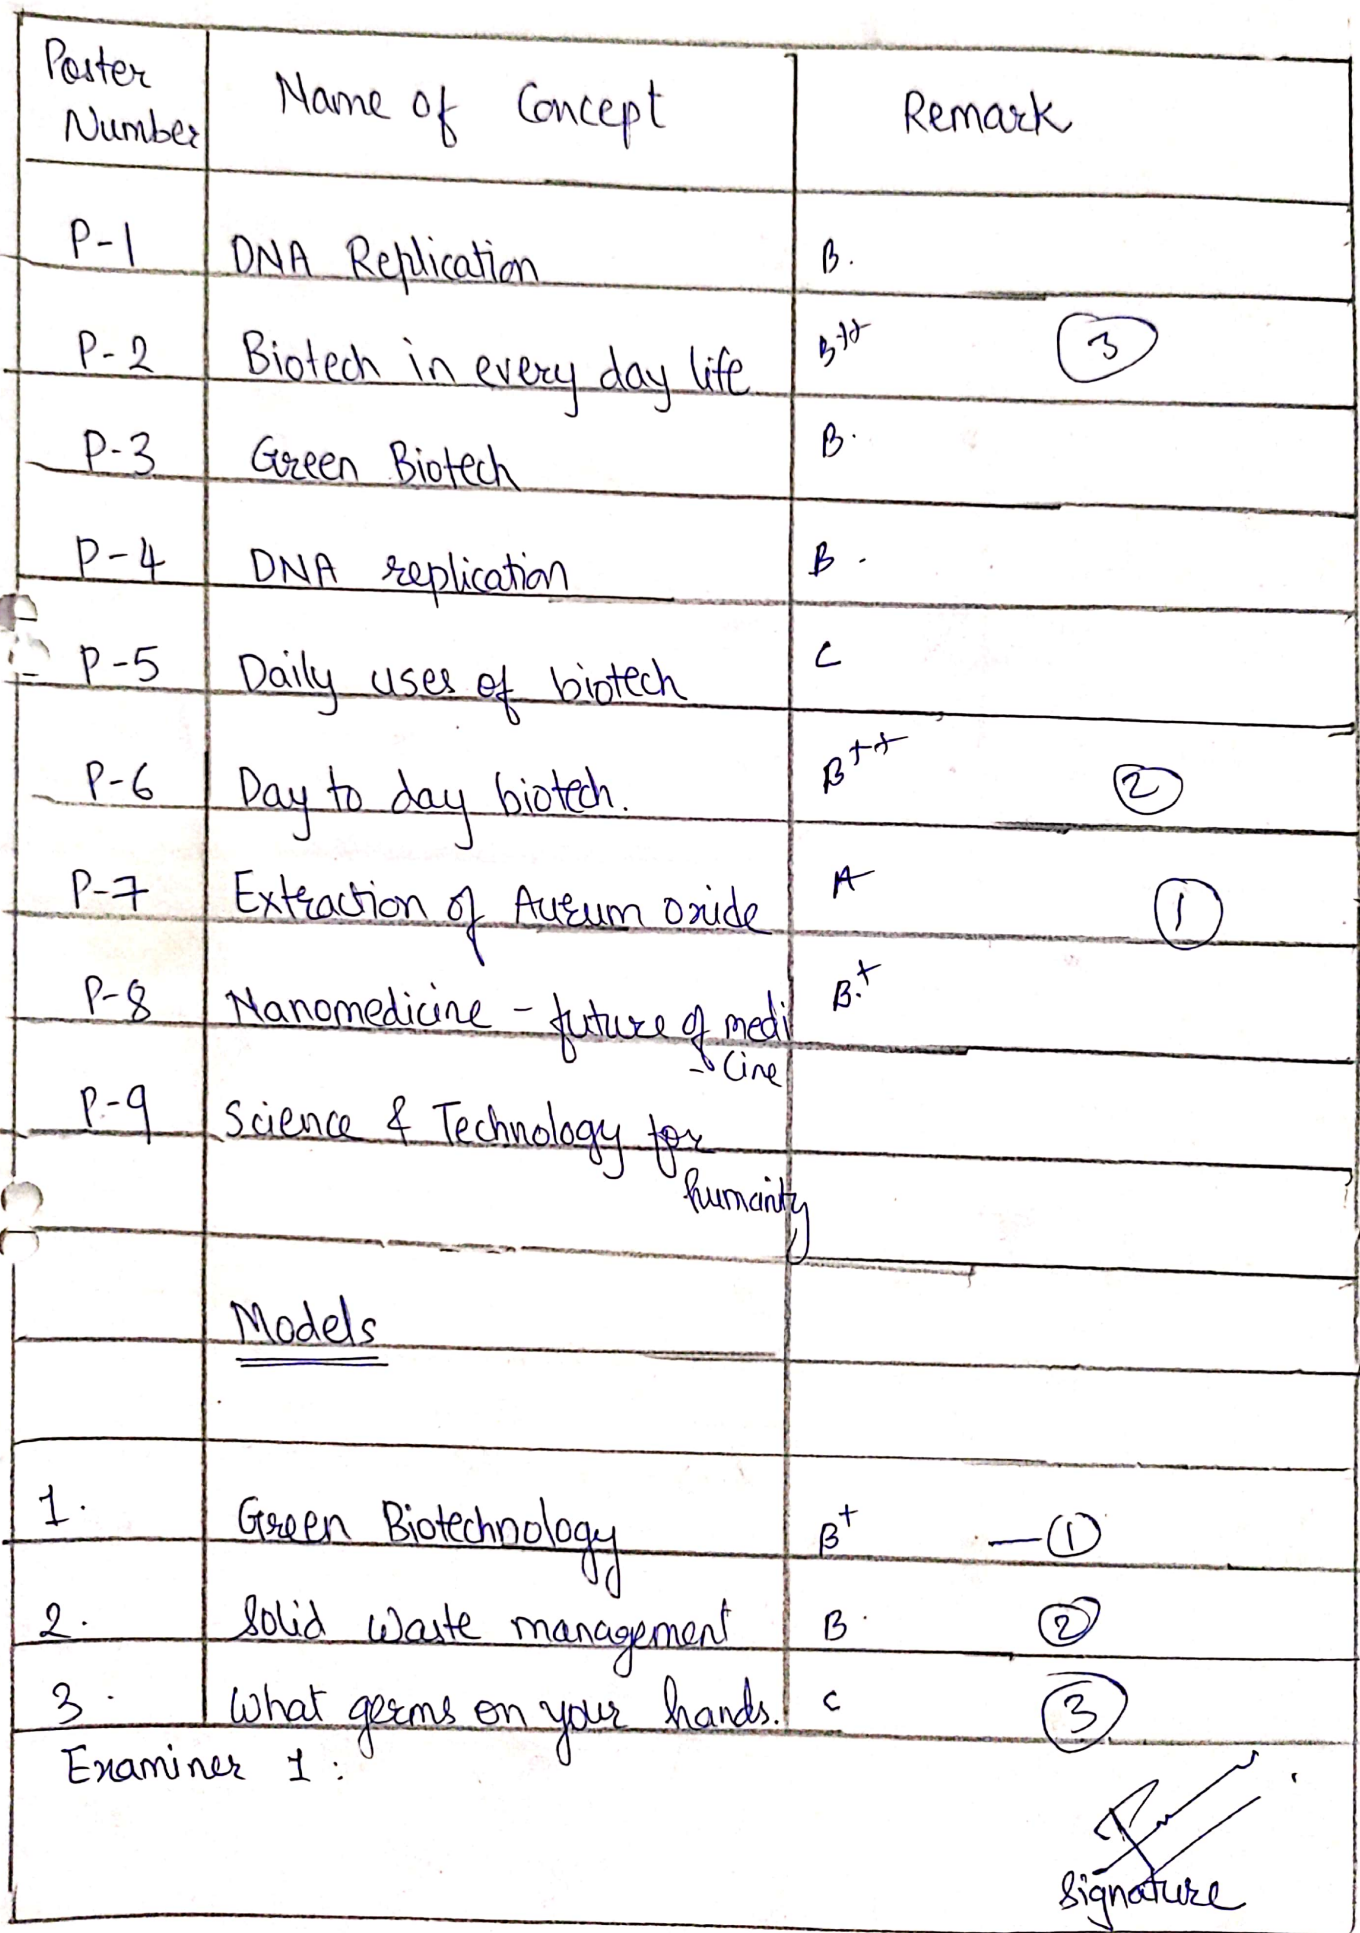 Poster Number Name of Concept Remark
P-1 DNA Replication B.
P-2 Biotech in every day life B++ 3
P-3 Green Biotech B.
P-4 DNA replication B.
P-5 Daily uses of biotech C
P-6 Day to day biotech. B++ 2
P-7 Extraction of Aurum oxide A 1
P-8 Nanomedicine - future of medi B.+
- cine
P-9 Science & Technology for
humanity
Models
1. Green Biotechnology B+ — 1
2. Solid Waste management B. 2
3. What germs on your hands. C 3
Examiner 1 :
Signature